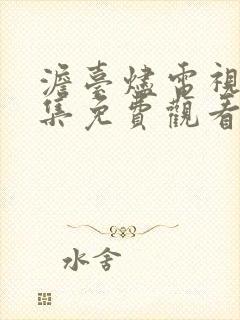 澹臺燼電視
集免費觀看
水舍